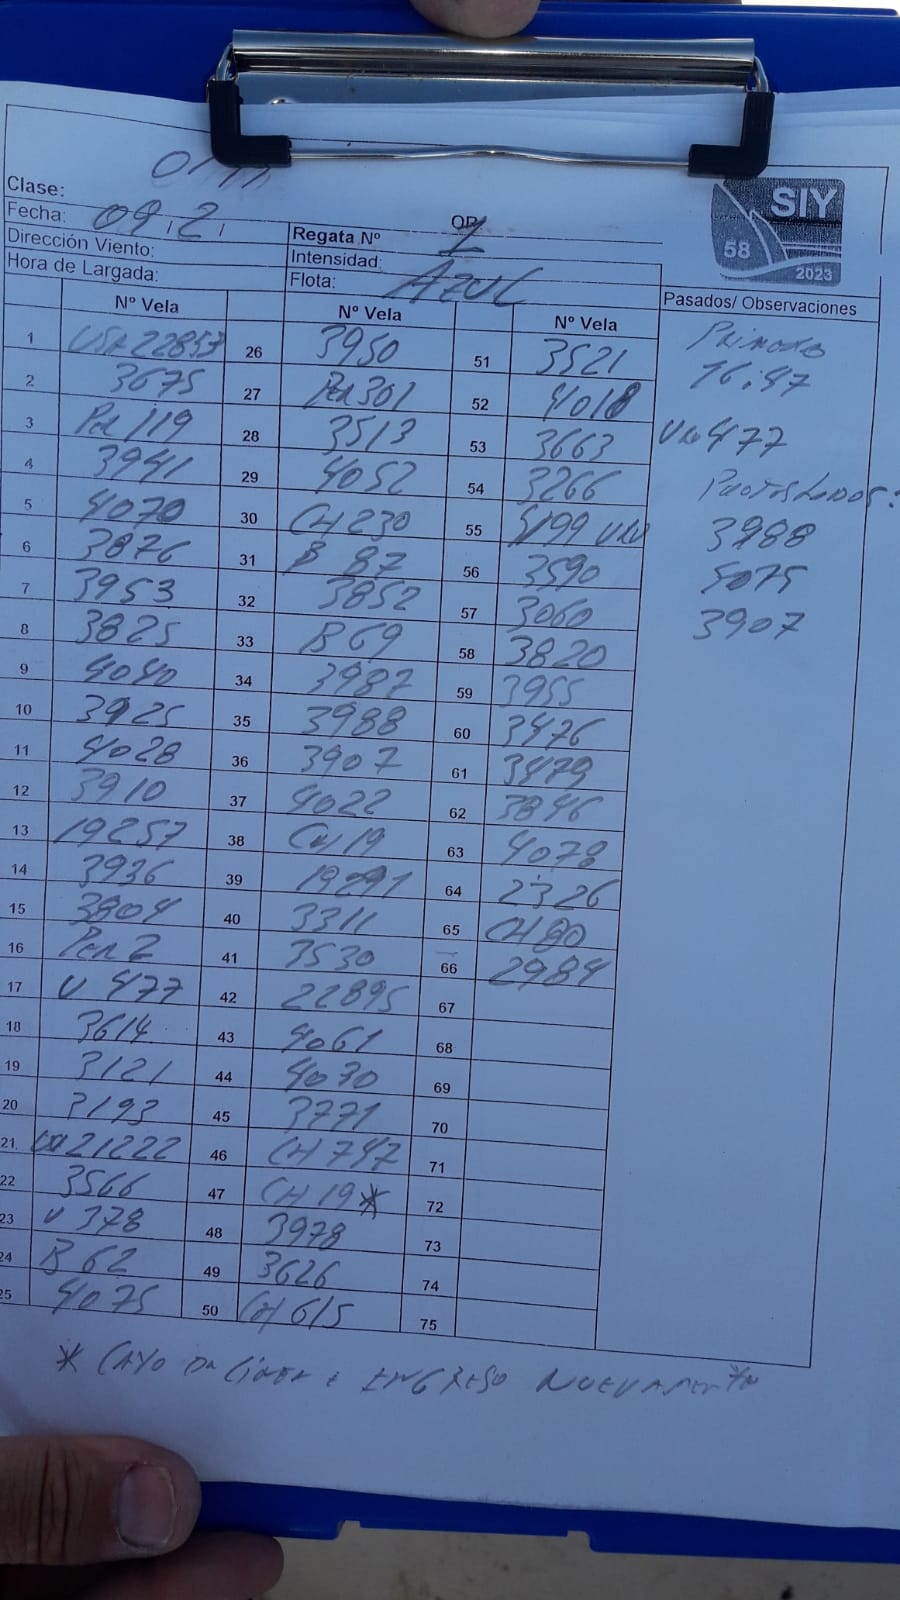 Clase: OPTI
Fecha: 09 / 2 /
OP
Regata Nº 1
Dirección Viento:
Intensidad:
Hora de Largada:
Flota: AZUL
SIY
58
2023
Nº Vela Nº Vela Nº Vela Pasados/ Observaciones
1 USA 22857 26 3950 51 3521
2 3675 27 PER 301 52 4018
3 PER 119 28 3513 53 3663
4 3941 29 4052 54 3266
5 4070 30 CH 230 55 URU
6 3876 31 B 87 56 3590
7 3953 32 3852 57 3060
8 3825 33 B 69 58 3820
9 4040 34 3987 59 3955
10 3925 35 3988 60 3476
11 4028 36 3907 61 3479
12 3910 37 4022 62 3846
13 19257 38 CH 19 63 4078
14 3936 39 64 2326
15 3904 40 3311 65 CH 80
16 PER 2 41 3530 66 2984
17 U 477 42 22895 67
18 3614 43 4061 68
19 3121 44 4030 69
20 3193 45 3771 70
21 21222 46 CH 747 71
22 3566 47 CH 19* 72
23 U 378 48 3978 73
24 B 62 49 3626 74
25 4075 50 CH 615 75
PRIMERO
16:47
URU 477
PROTESTADOS:
3988
4075
3907
* CAYO DE LINEA E INGRESO NUEVAMENTE